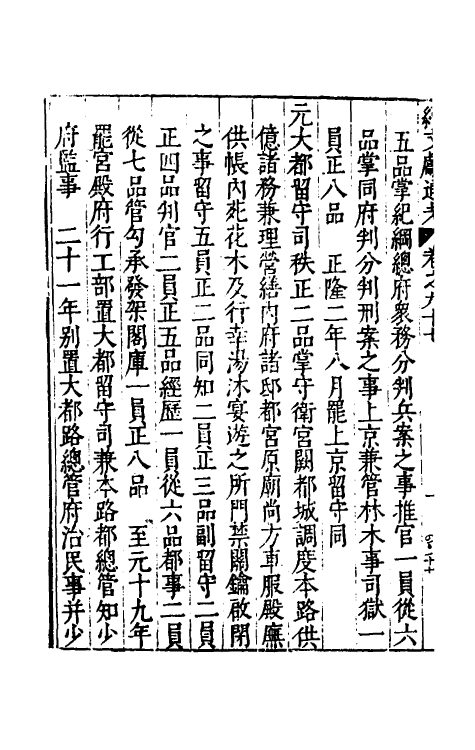 續文獻通考 卷之九十七
五品掌紀綱總府衆務分判兵案之事推官一員從六
品掌同府判分判刑案之事上京兼管林木事司獄一
員正八品 正隆二年八月罷上京留守同
元大都留守司秩正二品掌守衛宮闕都城調度本路供
億諸務兼理營繕内府諸邸都宮原廟尚方車服殿廡
供帳内苑花木及行幸湯沐宴遊之所門禁關鑰啟閉
之事留守五員正二品同知二員正三品副留守二員
正四品判官二員正五品經歷一員從六品都事二員
從七品管勾承發架閣庫一員正八品 至元十九年
罷宮殿府行工部置大都留守司兼本路都總管知少
府監事 二十一年别置大都路總管府治民事并少